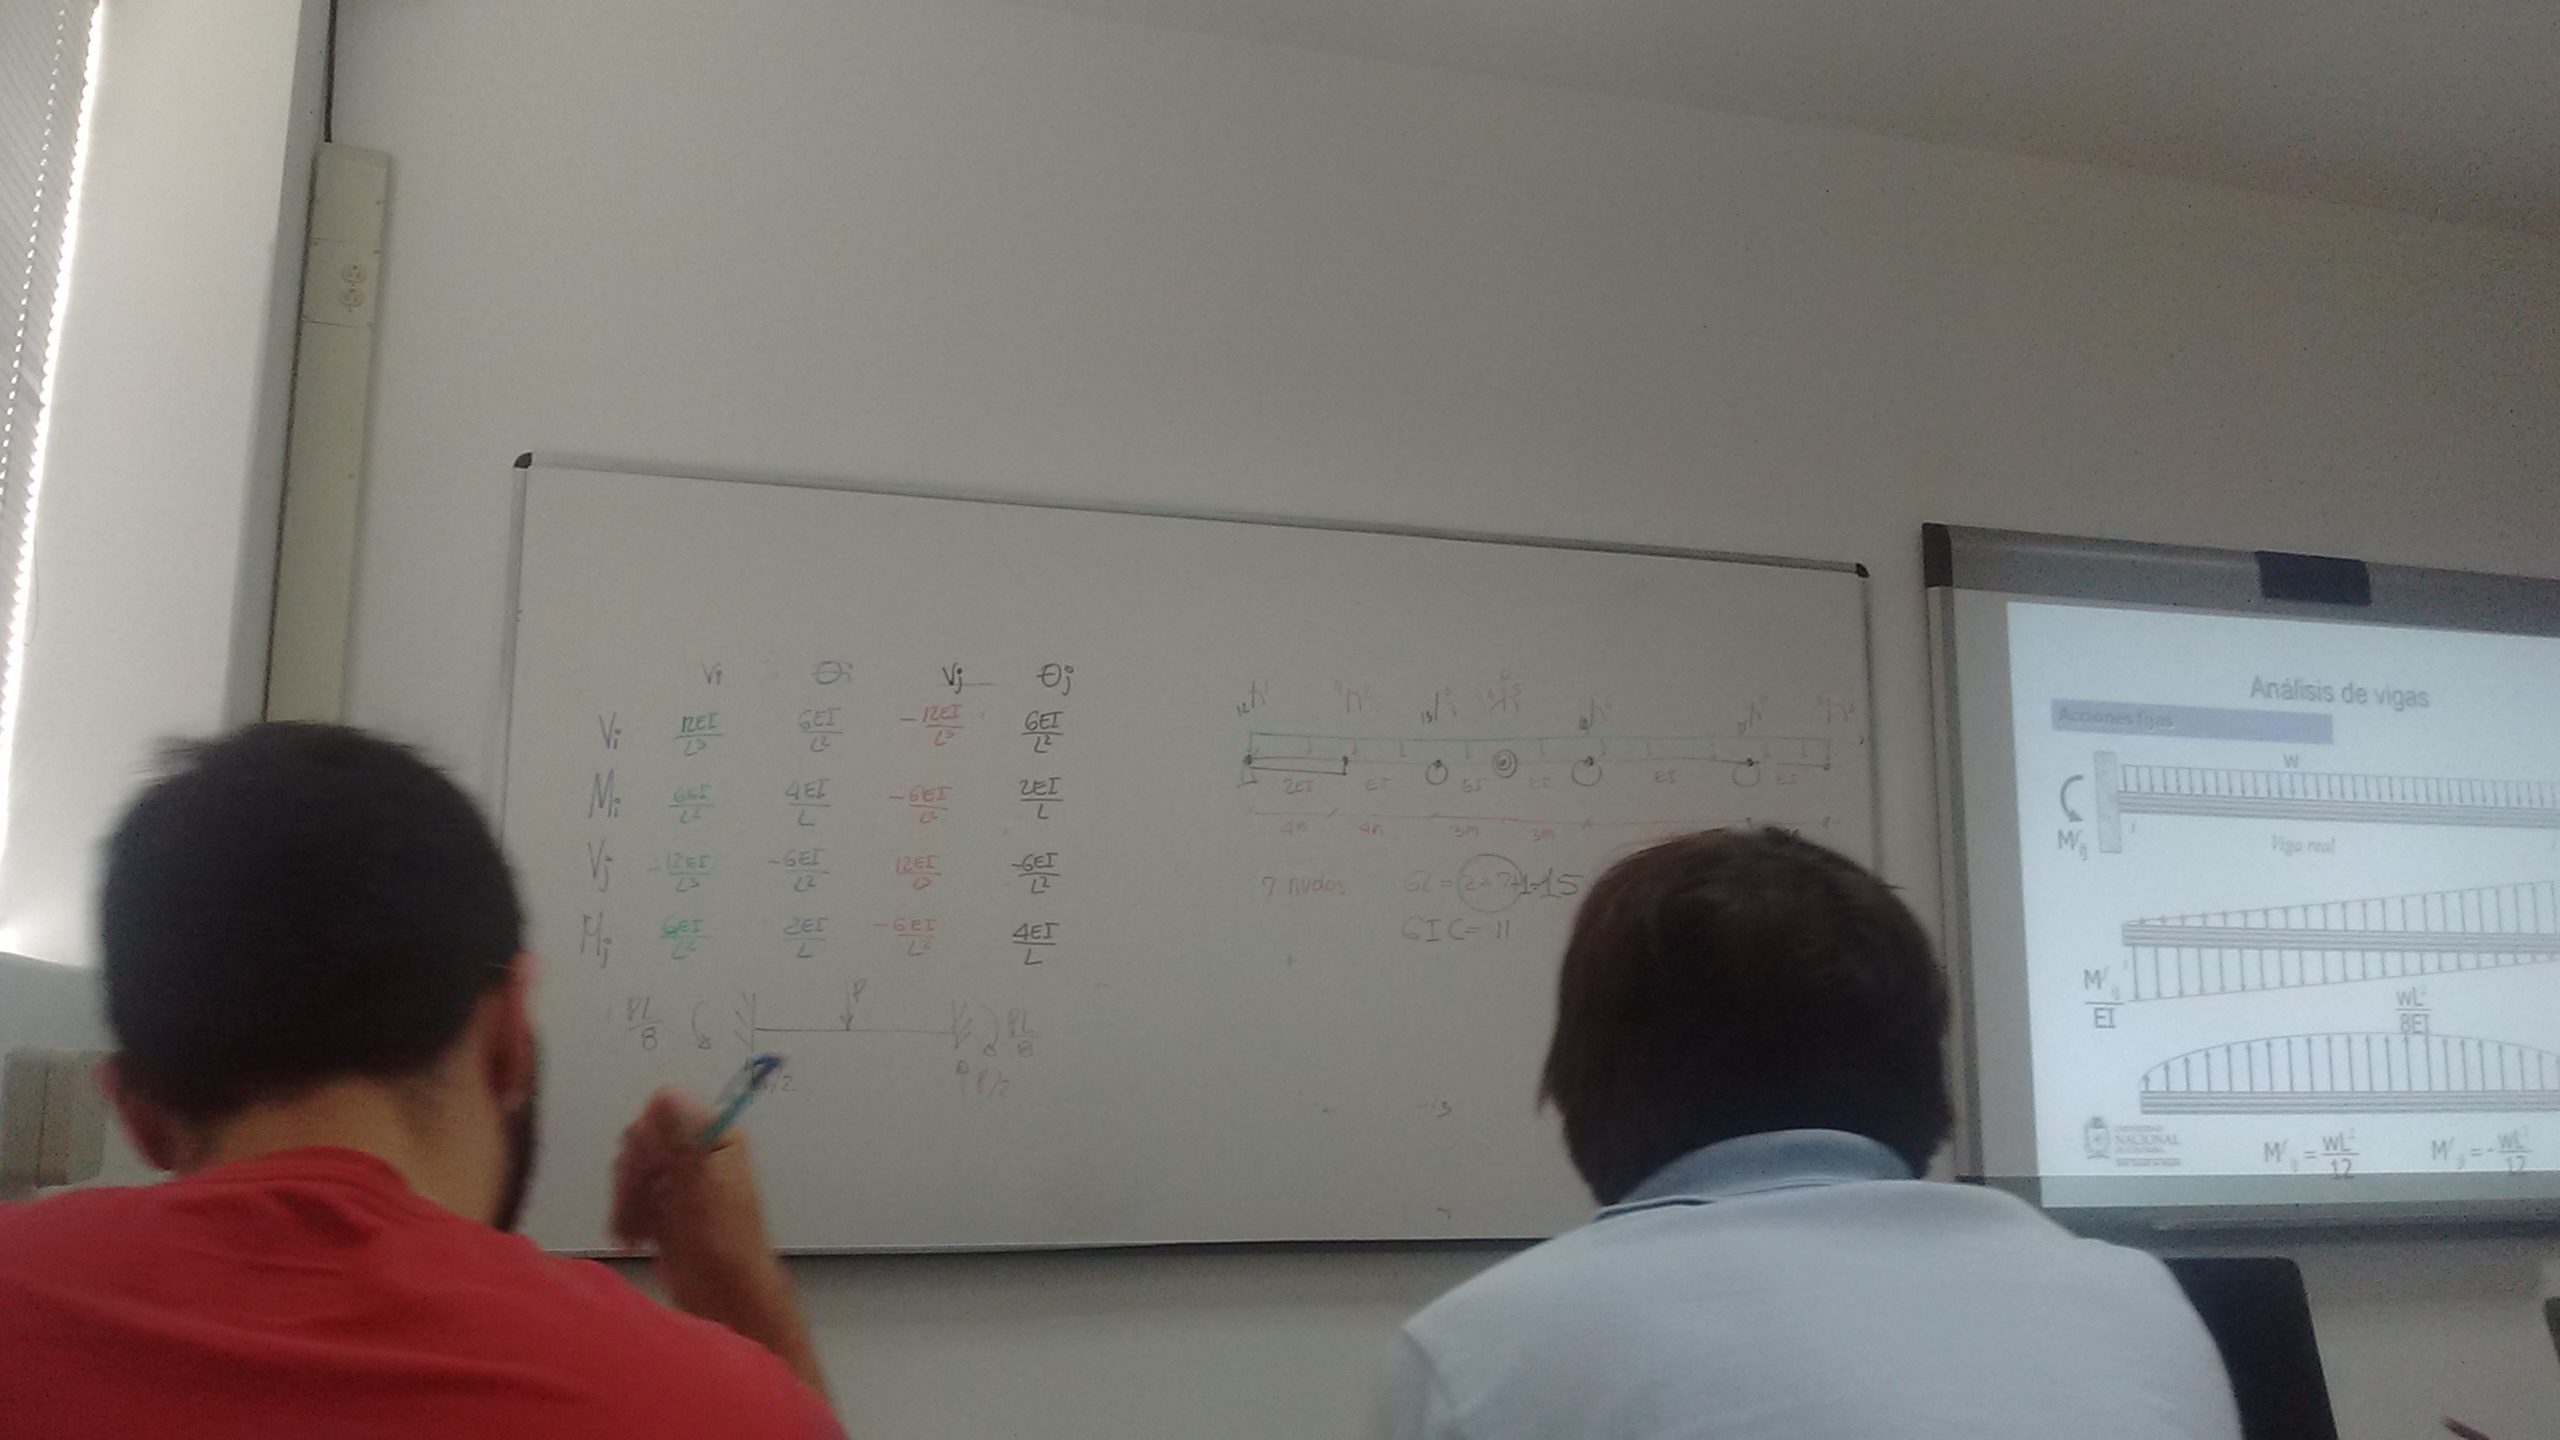 Vi θi Vj θj
Vi 12EI/L³ 6EI/L² -12EI/L³ 6EI/L²
Mi 6EI/L² 4EI/L -6EI/L² 2EI/L
Vj -12EI/L³ -6EI/L² 12EI/L³ -6EI/L²
Mj 6EI/L² 2EI/L -6EI/L² 4EI/L
PL/8 P PL/8
P/2
2EI EI EI EI EI EI
4m 4m 3m 3m
7 nudos GL=2*7+1=15
GIC=11
Análisis de vigas
Acciones fijas
W
Viga real
EI
wL²/8EI
NACIONAL
= wL²/12
= -wL²/12